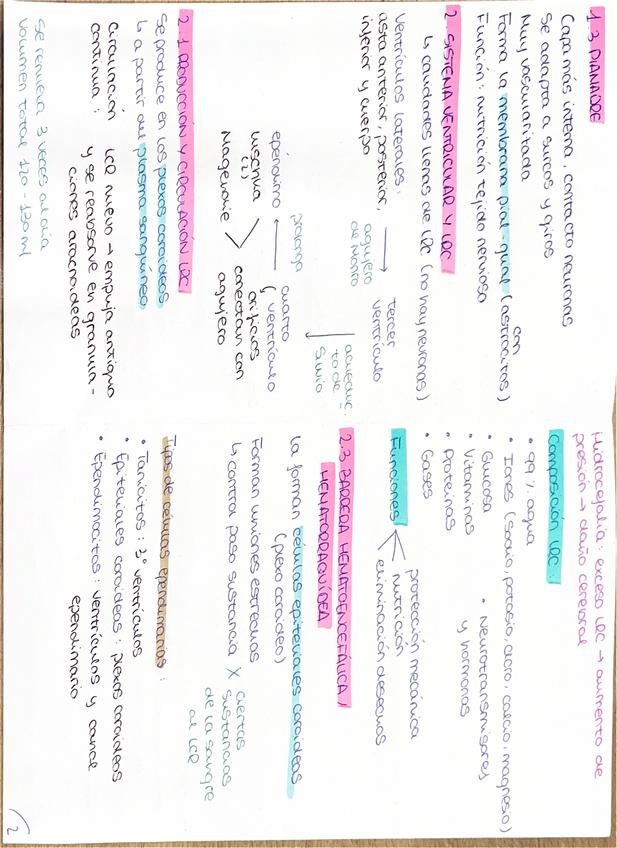 1.3 PIAMADRE
Capa más interna, contacto neuronas
Se adapta a surcos y giros
Muy vascularizada
Forma la membrana pial-glial (con astrocitos)
Función: nutrición tejido nervioso
2. SISTEMA VENTRICULAR Y LRC
↳ cavidades llenas de LRC (no hay neuronas)
Ventrículos laterales:
asta anterior, posterior,
inferior y cuerpo
agujero
de Monro
tercer
ventrículo
acueduc-
to de
Silvio
cuarto
ventrículo
prolonga
epéndimo
orificios
conectan con
agujero
Luschka
(2)
Magendie
2.1 PRODUCCIÓN Y CIRCULACIÓN LCR
Se produce en los plexos coroideos
↳ a partir del plasma sanguíneo
Circulación
continua:
LCR nuevo → empuja antiguo
y se reabsorve en granula-
ciones aracnoideas
Se renueva 3 veces al día
Volumen total 120-150 ml
Hidrocefalia: exceso LRC → aumento de
presión → daño cerebral
Composición LRC:
• 99% agua
• Iones (sodio, potasio, cloro, calcio, magnesio)
• Glucosa
• Vitaminas
• Proteínas
• Gases
• Neurotransmisores
y hormonas
Funciones
protección mecánica
nutrición
eliminación desechos
2.3 BARRERA HEMATOENCEFÁLICA /
HEMATORRAQUÍDEA
La forman células epiteliales coroideas
(plexo coroideo)
Forman uniones estrechas
↳ control paso sustancia X ciertas
sustancias
de la sangre
al LCR
Tipos de células ependimarias:
• Tanicitos: 3º ventrículos
• Epiteliales coroideas: plexos coroideos
• Ependimocitos: ventrículos y canal
ependimario
2